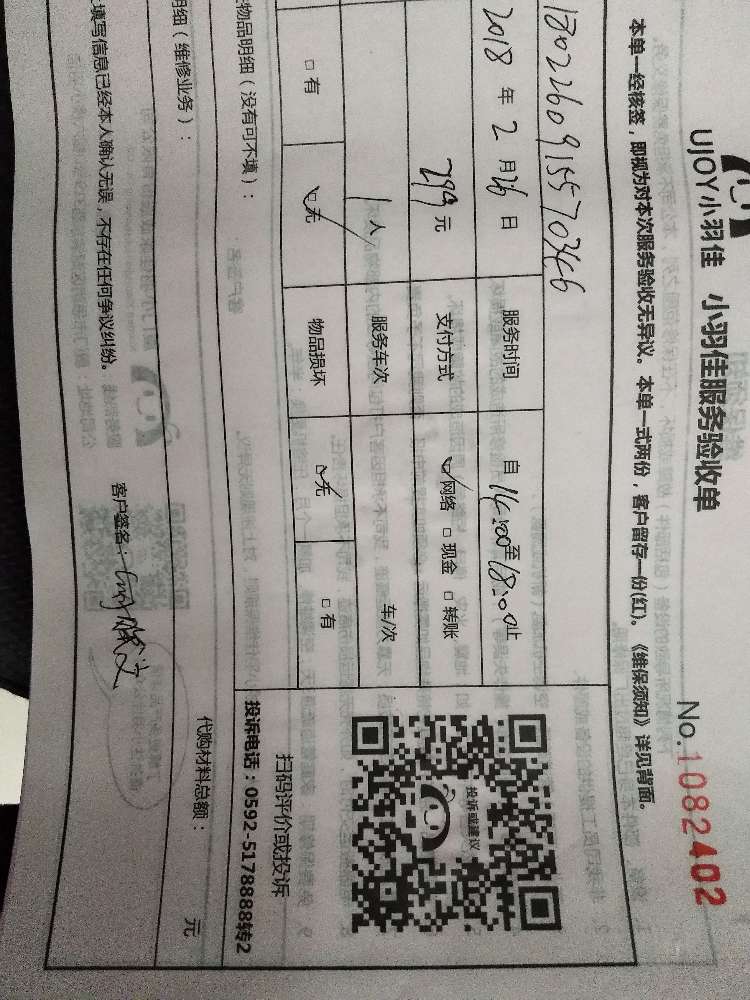 UJOY小羽佳 小羽佳服务验收单
No.1082402
本单一经核签，即视为对本次服务验收无异议。本单一式两份，客户留存一份(红)。《维保须知》详见背面。
2018 年 2 月 26 日 服务时间 自 14:00 至 18:00 止
299 元 支付方式 ☑网络 □现金 □转账
1人 服务车次 车/次
□有 ☑无 物品损坏 ☑无 □有
投诉或建议
扫码评价或投诉
投诉电话：0592-5178888转2
物品明细（没有可不填）：
明细（维修业务）：
代购材料总额： 元
填写信息已经本人确认无误，不存在任何争议纠纷。
客户签名：